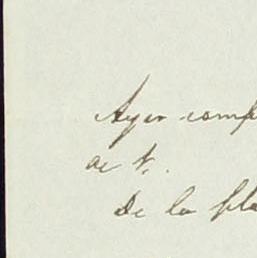 Ayer comp
de V.
De la pla